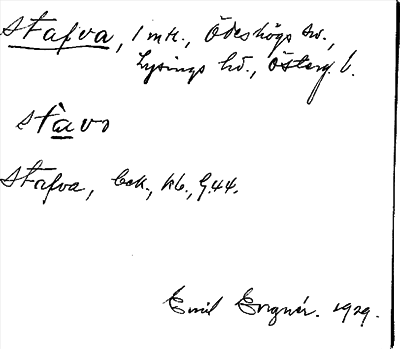 Stafva, 1 mtl., Ödeshögs sn.,
Lysings hd., Österg. l.
stàvo
Stafva, Eck., kb., G.44.
Emil Evgnér. 1929.